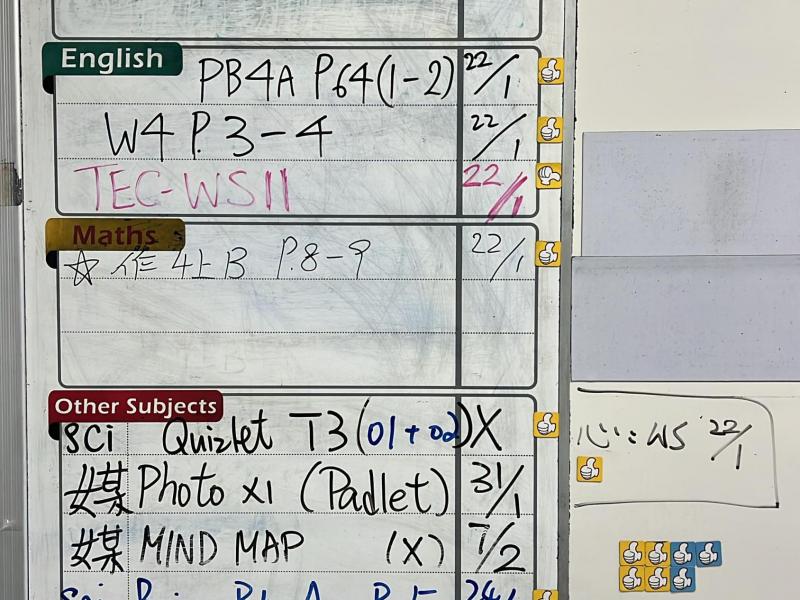 English
PB4A P.64(1-2) 22/1
W4 P.3-4 22/1
TEC-WS11 22/1
Maths
☆ 作 4上B P.8-9 22/1
Other Subjects
sci Quizlet T3(01+02)X
媒 Photo x1 (Padlet) 31/1
媒 MIND MAP (X) 7/2
心:WS 22/1